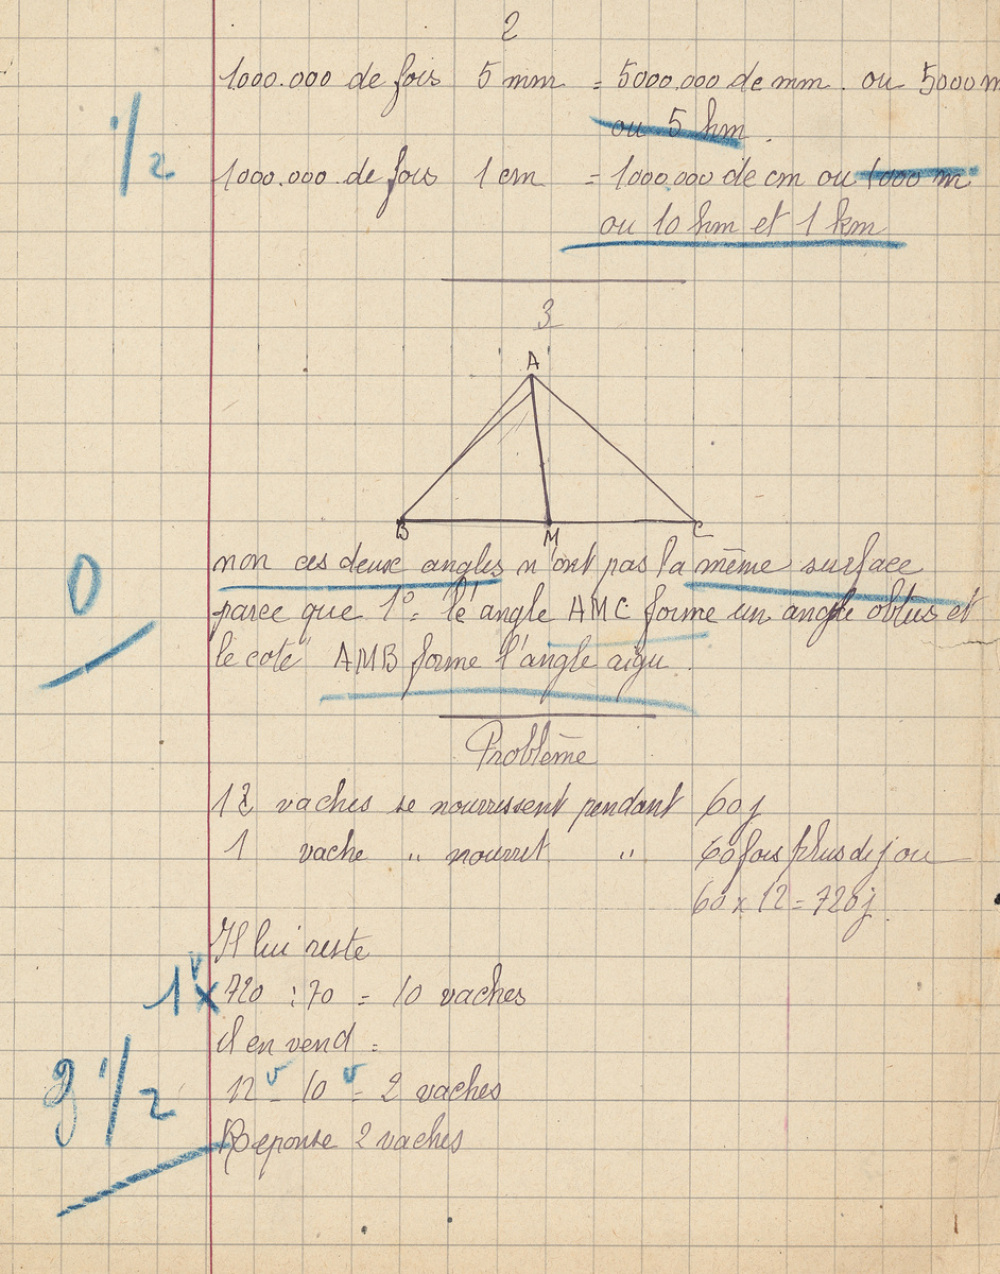 2
1000.000 de fois 5 mm = 5000.000 de mm. ou 5000 m
ou 5 hm.
1/2
1000.000 de fois 1 cm = 1000.000 de cm ou 1000 m
ou 10 hm et 1 km
3
A
B M C
non ces deux angles n'ont pas la même surface
0
parce que 1° = le angle AMC forme un angle obtus et
le coté AMB forme l'angle aigu.
Problème
12 vaches se nourrissent pendant 60 j
1 vache " nourret " 60 fois plus de j ou
60 x 12 = 720 j.
Il lui reste
1 x 720 : 70 = 10 vaches
il en vend =
12 v - 10 v = 2 vaches
3 1/2
Reponse 2 vaches